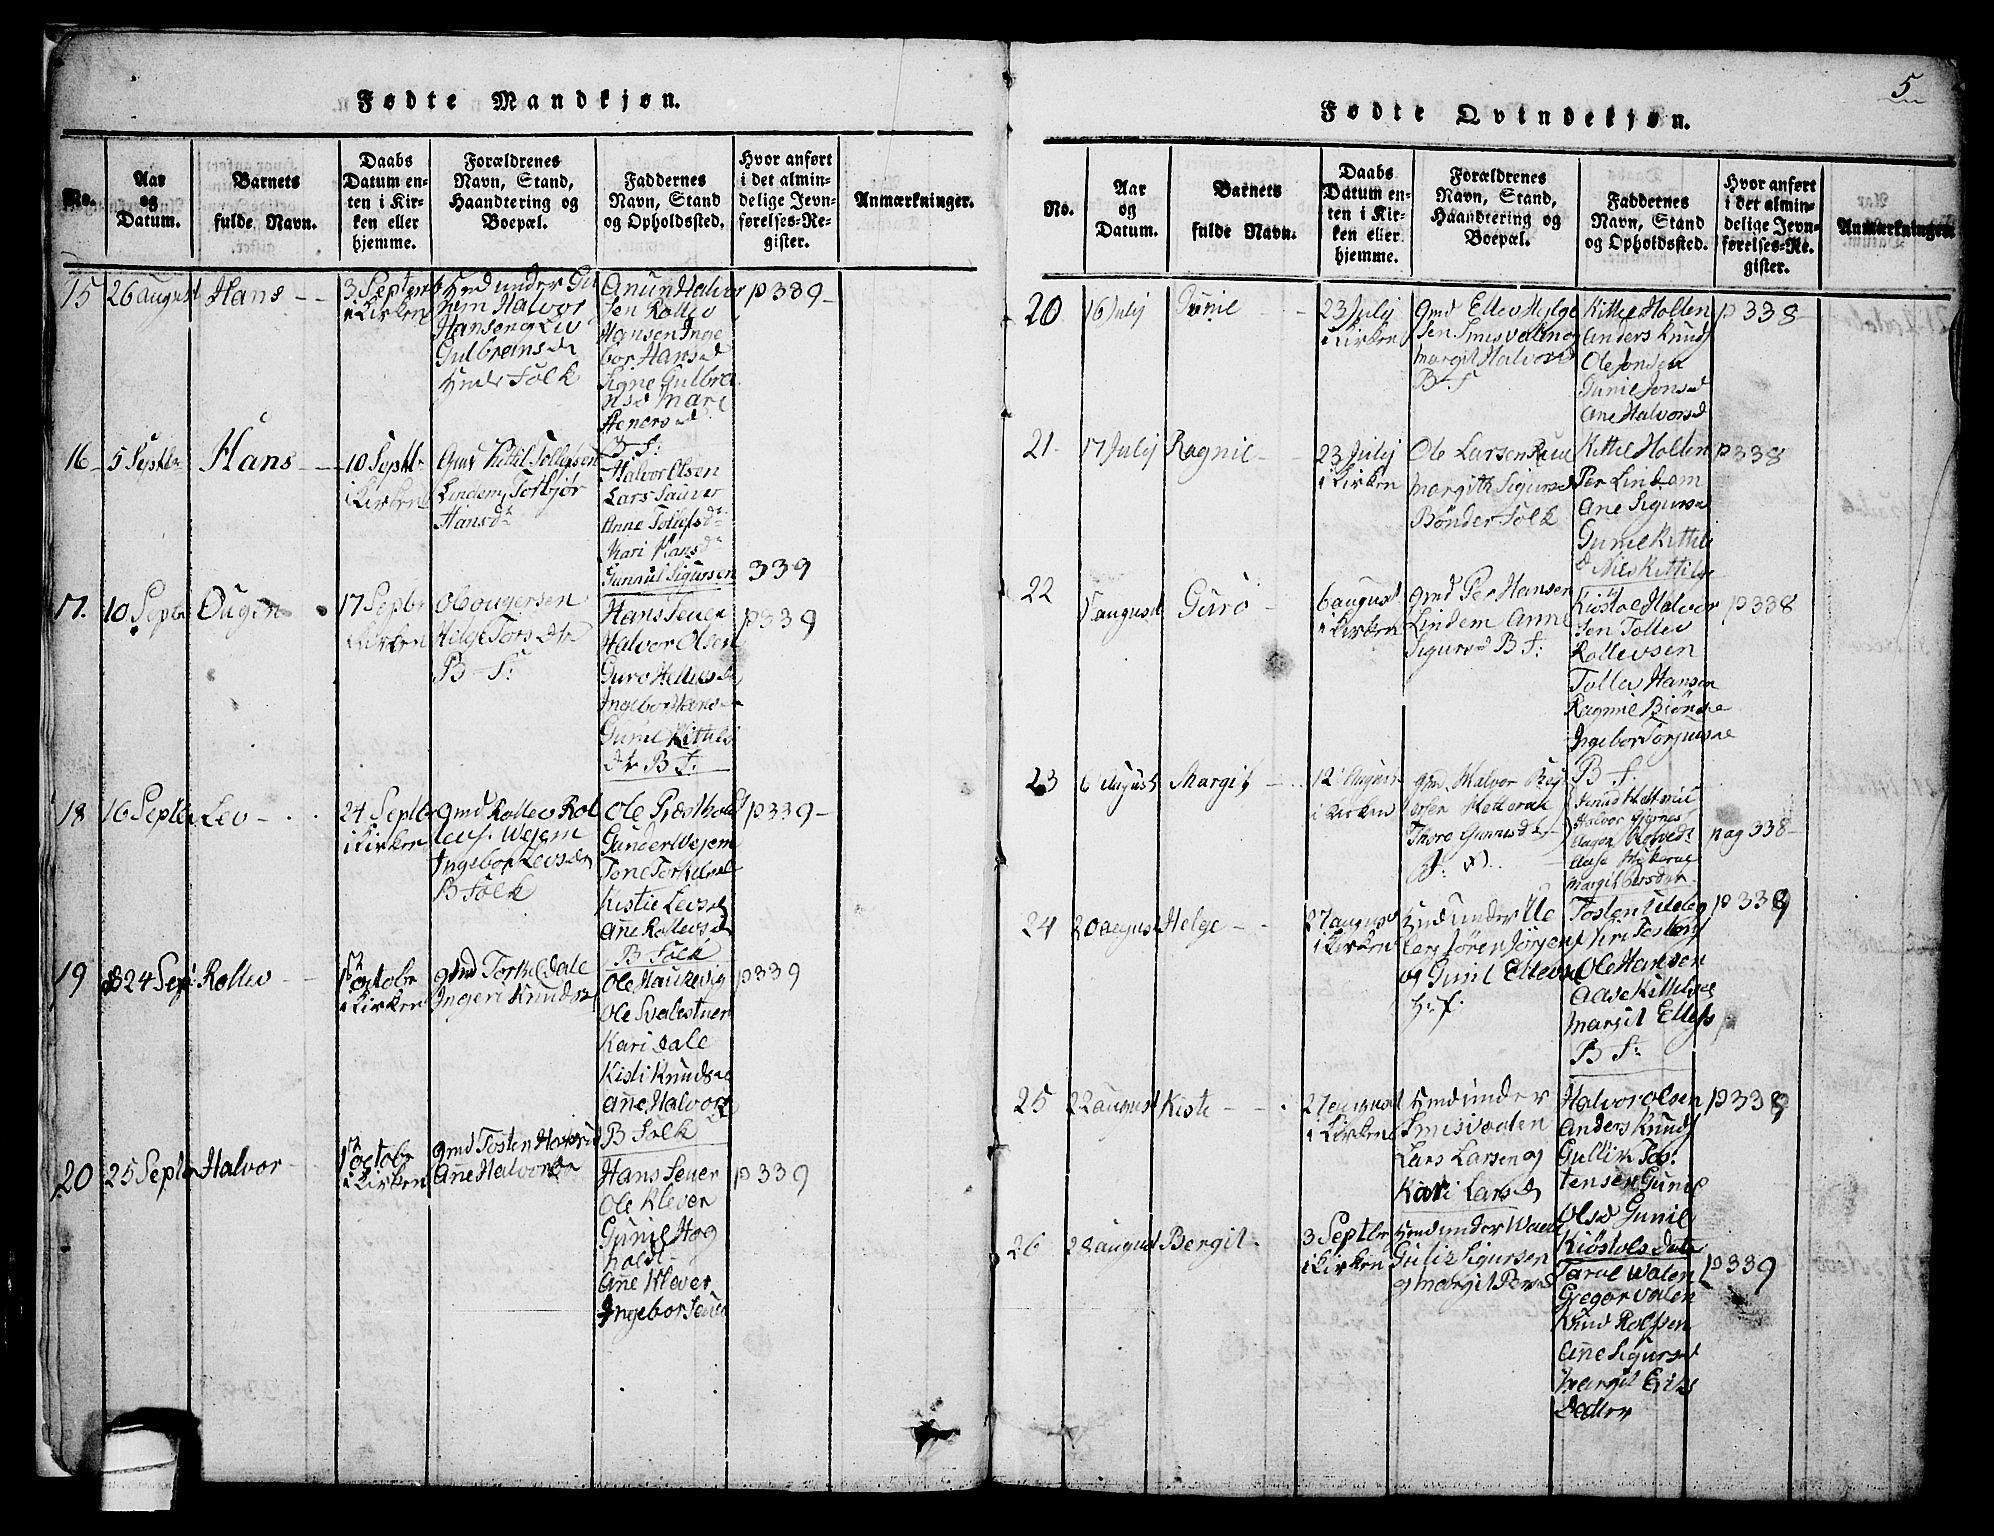 5
Fødte Mandkjøn.
No.
Aar
og
Datum.
Barnets
fulde Navn.
Daabs
Datum en-
ten i Kir-
ken eller
hjemme.
Forældrenes
Navn, Stand,
Haandtering og
Boepæl.
Faddernes
Navn, Stand
og Opholdssted.
Hvor anført
i det almin-
delige Jevn-
førelses-Re-
gister.
Anmærkninger.
15
26 August
Hans
3 Septemb
i Kirken
Hmd under
Halvor
Hansen og Liv
Gulbransd
Hmds Folk
Anun Halvor
sen Rollev
Hansen Inge
bor Hansd
Signe Gulbra
nsd Mari
B F:
p 339
16
5 Septbr
Hans
10 Septbr
i Kirken
Gmd Kittil Tollefsen
Lindem, Torbjør
Hansdr
Halvor Olsen
Lars Sauver
Anne Tollefsdr
Kari Hansdr
Gunnul Sigursen
339
17.
10 Septbr
Ougen
17 Septbr
i Kirken
Ole Ougersen
Helge Torsdtr
B F:
Hans Seuer
Halvor Olsen
Guro
Ingebor Hansd
Gunil Kittils
dtr B F:
p 339
18
16 Septbr
Lev
24 Septbr
i Kirken
Gmd Rollev Rol
lefs. Wejem
Ingebor Levsdr
B Folk
Ole Præstholt
Gunder Wejem
Tone Torkilsd
Kistie Levsd
Ane Rollevsd
B Folk
p 339
19
24 Sept
Rollev
1 octobr
i Kirken
gmd Torkel Dale
Ingeri Knudsd
Ole Haukevig
Ole Svalestuen
Kari Dale
Kisti Knudsd
Ane Halvors
B Folk
p 339
20
25 Septbr
Halvor
1 octobr
i Kirken
gmd Tosten
Ane Halvorsdr
Hans Seuer
Ole Klever
Gunil Hog
holdt
Ane Klever
Ingebor Seuer
p 339
Fødte Qvindekjøn.
No.
Aar
og
Datum.
Barnets
fulde Navn.
Daabs
Datum en-
ten i Kir-
ken eller
hjemme.
Forældrenes
Navn, Stand,
Haandtering og
Boepæl.
Faddernes
Navn, Stand
og Opholdssted.
Hvor anført
i det almin-
delige Jevn-
førelses-Re-
gister.
Anmærkninger.
20
16 July
Gunil
23 July
i Kirken
gmd Ellev Helge
sen Smisvalen og
Margit Halvorsd
B F
Kittil Holten
Anders Knuds
Ole Jonsen
Gunil Jonsd
Ane Halvorsd
p 338
21
17 July
Ragnil
23 July
i Kirken
Ole Larsen
Margith Sigursd
Bønder Folk
Kittil Holten
Per Lindem
Ane Sigursd
Gunil Kittils
d Nils Kittils
p 338
22
5 august
Guro
6 august
i Kirken
gmd Per Hansen
Lindem Anne
Sigursd B F:
Kiøstol Halvor
sen Tollev
Rollevsen
Tollev Hansen
Ragnil Biønsd
Ingebor Torjusd
B F.
p 338
23
6 August
Margit
12 August
i Kirken
gmd Halvor
Thore Gunnisdtr
Margit Persdtr
pag 338
24
20 august
Helge
27 august
i Kirken
Hmd under
Sören Jörgens
og Gunil Ellevsd
H: f:
Tosten
Ole Hansen
Aase Kittilsd
Margit Ellefs
B F:
p 338
25
22 august
Kisti
27 august
i Kirken
Hmd under
Smisvalen
Lars Larsen og
Kari Larsd
Halvor Olsen
Anders Knuds
Gullik Tos-
tensen Gunil
Olsd Gunil
Kiöstols Datr
p 338
26
28 august
Bergit
3 Septbr
i Kirken
Hmd under Walen
Gulik Sigursen
og Margit Persd
Tarul Walen
Gregar Valen
Knud Rolfsen
Ane Sigursd
Margit Eriks
Datter
p 339